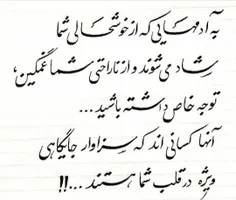 به آدمهایی که از خوشحالی شما
شاد می‌شوند و از ناراحتی شما غمگین،
توجه خاص داشته باشید...
آنها کسانی اند که سزاوار جایگاهی
ویژه در قلب شما هستند...!!